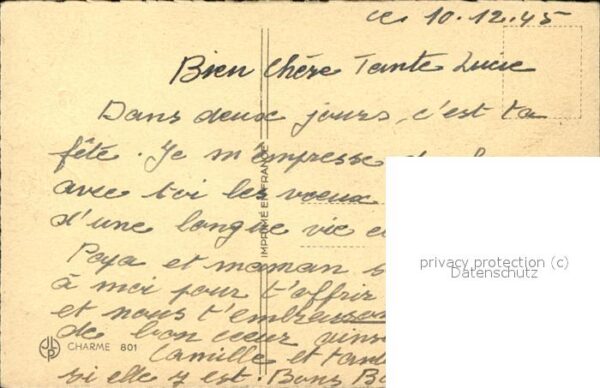 ce 10.12.45
Bien Chère Tante Lucie
Dans deux jours, c'est ta
fête. Je m'empresse
avec toi les voeux
d'une longue vie
Papa et maman
à moi pour t'offrir
et nous t'embrassons
de bon coeur
Camille et
si elle y est. Bons
IMPRIMÉ EN FRANCE
CHARME 801
privacy protection (c)
Datenschutz